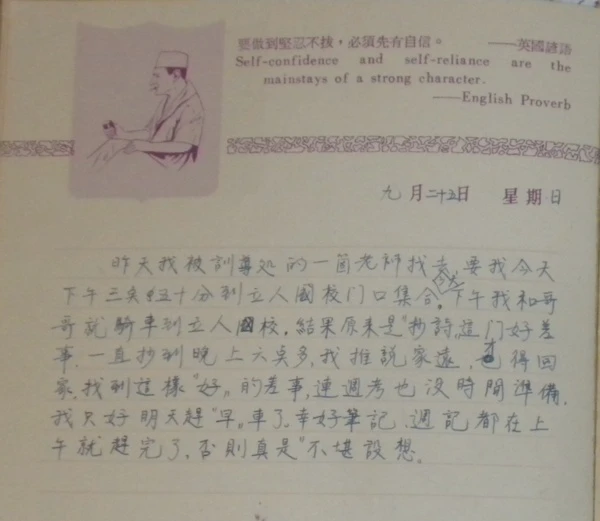 要做到堅忍不拔，必須先有自信。 ——英國諺語
Self-confidence and self-reliance are the
mainstays of a strong character.
——English Proverb
九月二十五日 星期日
昨天我被訓導处的一箇老師找去，要我今天
下午三点五十分到立人國校门口集合。下午我和哥
哥就騎車到立人國校，結果原来是"抄詩"這门好差
事，一直抄到晚上六点多，我推說家遠，才得回
家，找到這樣"好"的差事，連週考也没時間準備，
我只好明天趕"早"車了。幸好筆記、週記都在上
午就趕完了，否則真是"不堪設想。